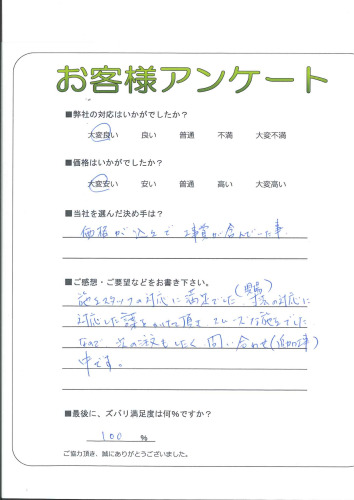 お客様アンケート
■弊社の対応はいかがでしたか?
大変良い 良い 普通 不満 大変不満
■価格はいかがでしたか?
大変安い 安い 普通 高い 大変高い
■当社を選んだ決め手は?
価格が 込みで 工事費が含んでいた事
■ご感想・ご要望などをお書き下さい。
施工スタッフの対応に満足でした(現場) の対応に
対応した 頂き スムーズな施工でした
なので 次の注文もしたく 問い合わせ(追加工事)
中です。
■最後に、ズバリ満足度は何%ですか?
100 %
ご協力頂き、誠にありがとうございました。